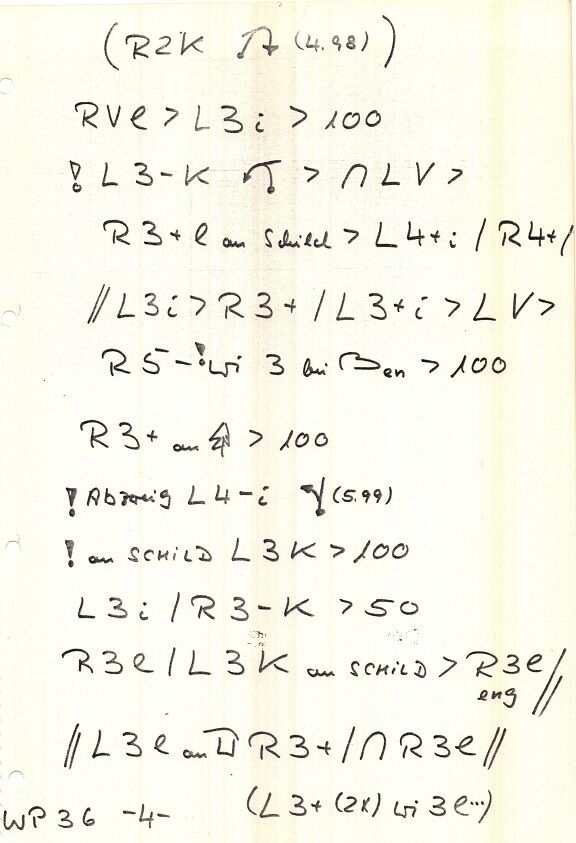 (R2K (4.98))
RVl > L3i > 100
! L3-K > ∩ LV >
R3+l an Schild > L4+i / R4+/
// L3i > R3+ / L3+i > LV >
R5-! wi 3 bei en > 100
R3+ an > 100
! Abzweig L4-i (5.99)
! an SCHILD L3K > 100
L3i / R3-K > 50
R3l / L3K an SCHILD > R3l //
eng
// L3l an R3+ / ∩ R3l //
(L3+ (2x) wi 3l...)
WP36 -4-